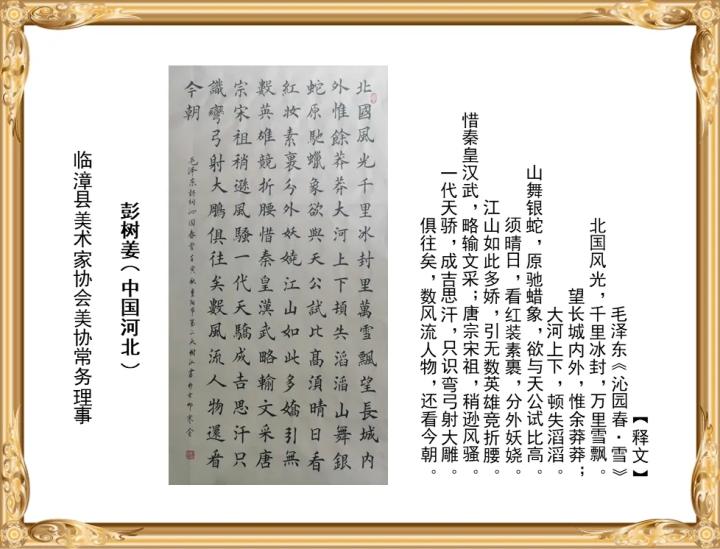 【释文】
毛泽东《沁园春·雪》
北国风光，千里冰封，万里雪飘。
望长城内外，惟余莽莽；
大河上下，顿失滔滔。
山舞银蛇，原驰蜡象，欲与天公试比高。
须晴日，看红装素裹，分外妖娆。
江山如此多娇，引无数英雄竞折腰。
惜秦皇汉武，略输文采；唐宗宋祖，稍逊风骚。
一代天骄，成吉思汗，只识弯弓射大雕。
俱往矣，数风流人物，还看今朝。
北國風光千里冰封里萬雪飄望長城内
外惟餘莽莽大河上下頓失滔滔山舞銀
蛇原馳蠟象欲與天公試比高須晴日看
紅妆素裹分外妖娆江山如此多嬌引無
數英雄競折腰惜秦皇漢武略輸文采唐
宗宋祖稍遜風騷一代天驕成吉思汗只
識彎弓射大鵰俱往矣數風流人物還看
今朝
毛泽东詩詞沁园春雪壬寅秋重阳节第二天樹
彭树姜（中国河北）
临漳县美术家协会美协常务理事